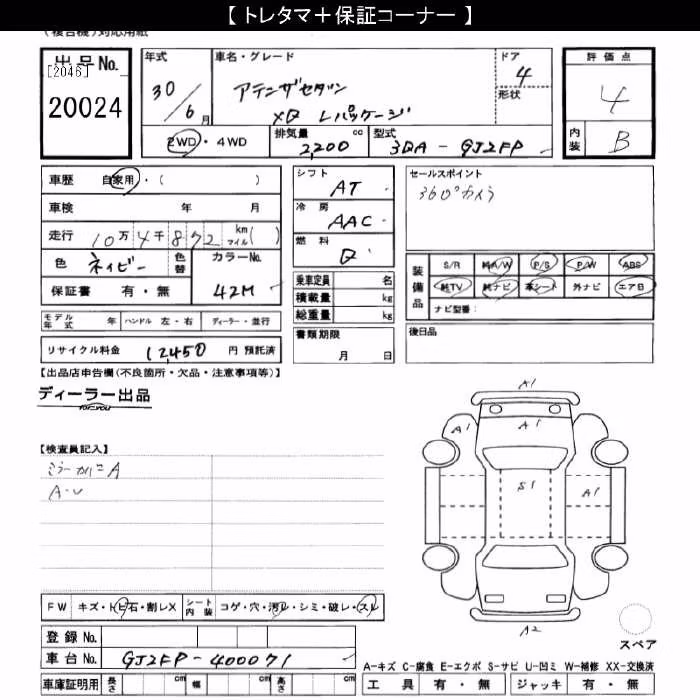 【 トレタマ＋保証コーナー 】
(複合機)対応用紙
出品No.
[2046]
20024
年式
30/6月
車名・グレード
アテンザセダン
XD Lパッケージ
ドア
4
形状
2WD・4WD
排気量 2,200 cc
型式 3DA-GJ2FP
評価点
4
内装 B
車歴 自家用・( )
車検 年 月
走行 10万4千872 km マイル( )
色 ネイビー 色替 カラーNo.
保証書 有・無 42M
モデル年式 年 ハンドル 左・右 ディーラー・並行
リサイクル料金 12,450 円 預託済
シフト AT
冷房 AAC
燃料 D
乗車定員 名
積載量 kg
総重量 kg
書類期限
月 日
セールスポイント
360°カメラ
装備品
S/R 純A/W P/S P/W ABS
純TV 純ナビ 革シート 外ナビ エアB
ナビ型番：
後日品
【出品店申告欄(不良箇所・欠品・注意事項等)】
ディーラー出品
FOR-YOU
【検査員記入】
ミラーカバーA
A・U
A1
A1
A1
S1
A1
A2
スペア
FW キズ・トビ石・割レX シート内装 コゲ・穴・汚レ・シミ・破レ・スレ
登録No.
車台No. GJ2FP-400071
車庫証明用 長さ cm 幅 cm 高さ cm
A-キズ C-腐食 E-エクボ S-サビ U-凹ミ W-補修 XX-交換済
工具 有・無 ジャッキ 有・無